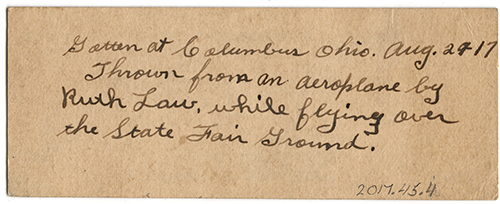 Gotten at Columbus Ohio. Aug. 29-17
Thrown from an aeroplane by
Ruth Law, while flying over
the State Fair Ground.
2017.45.4